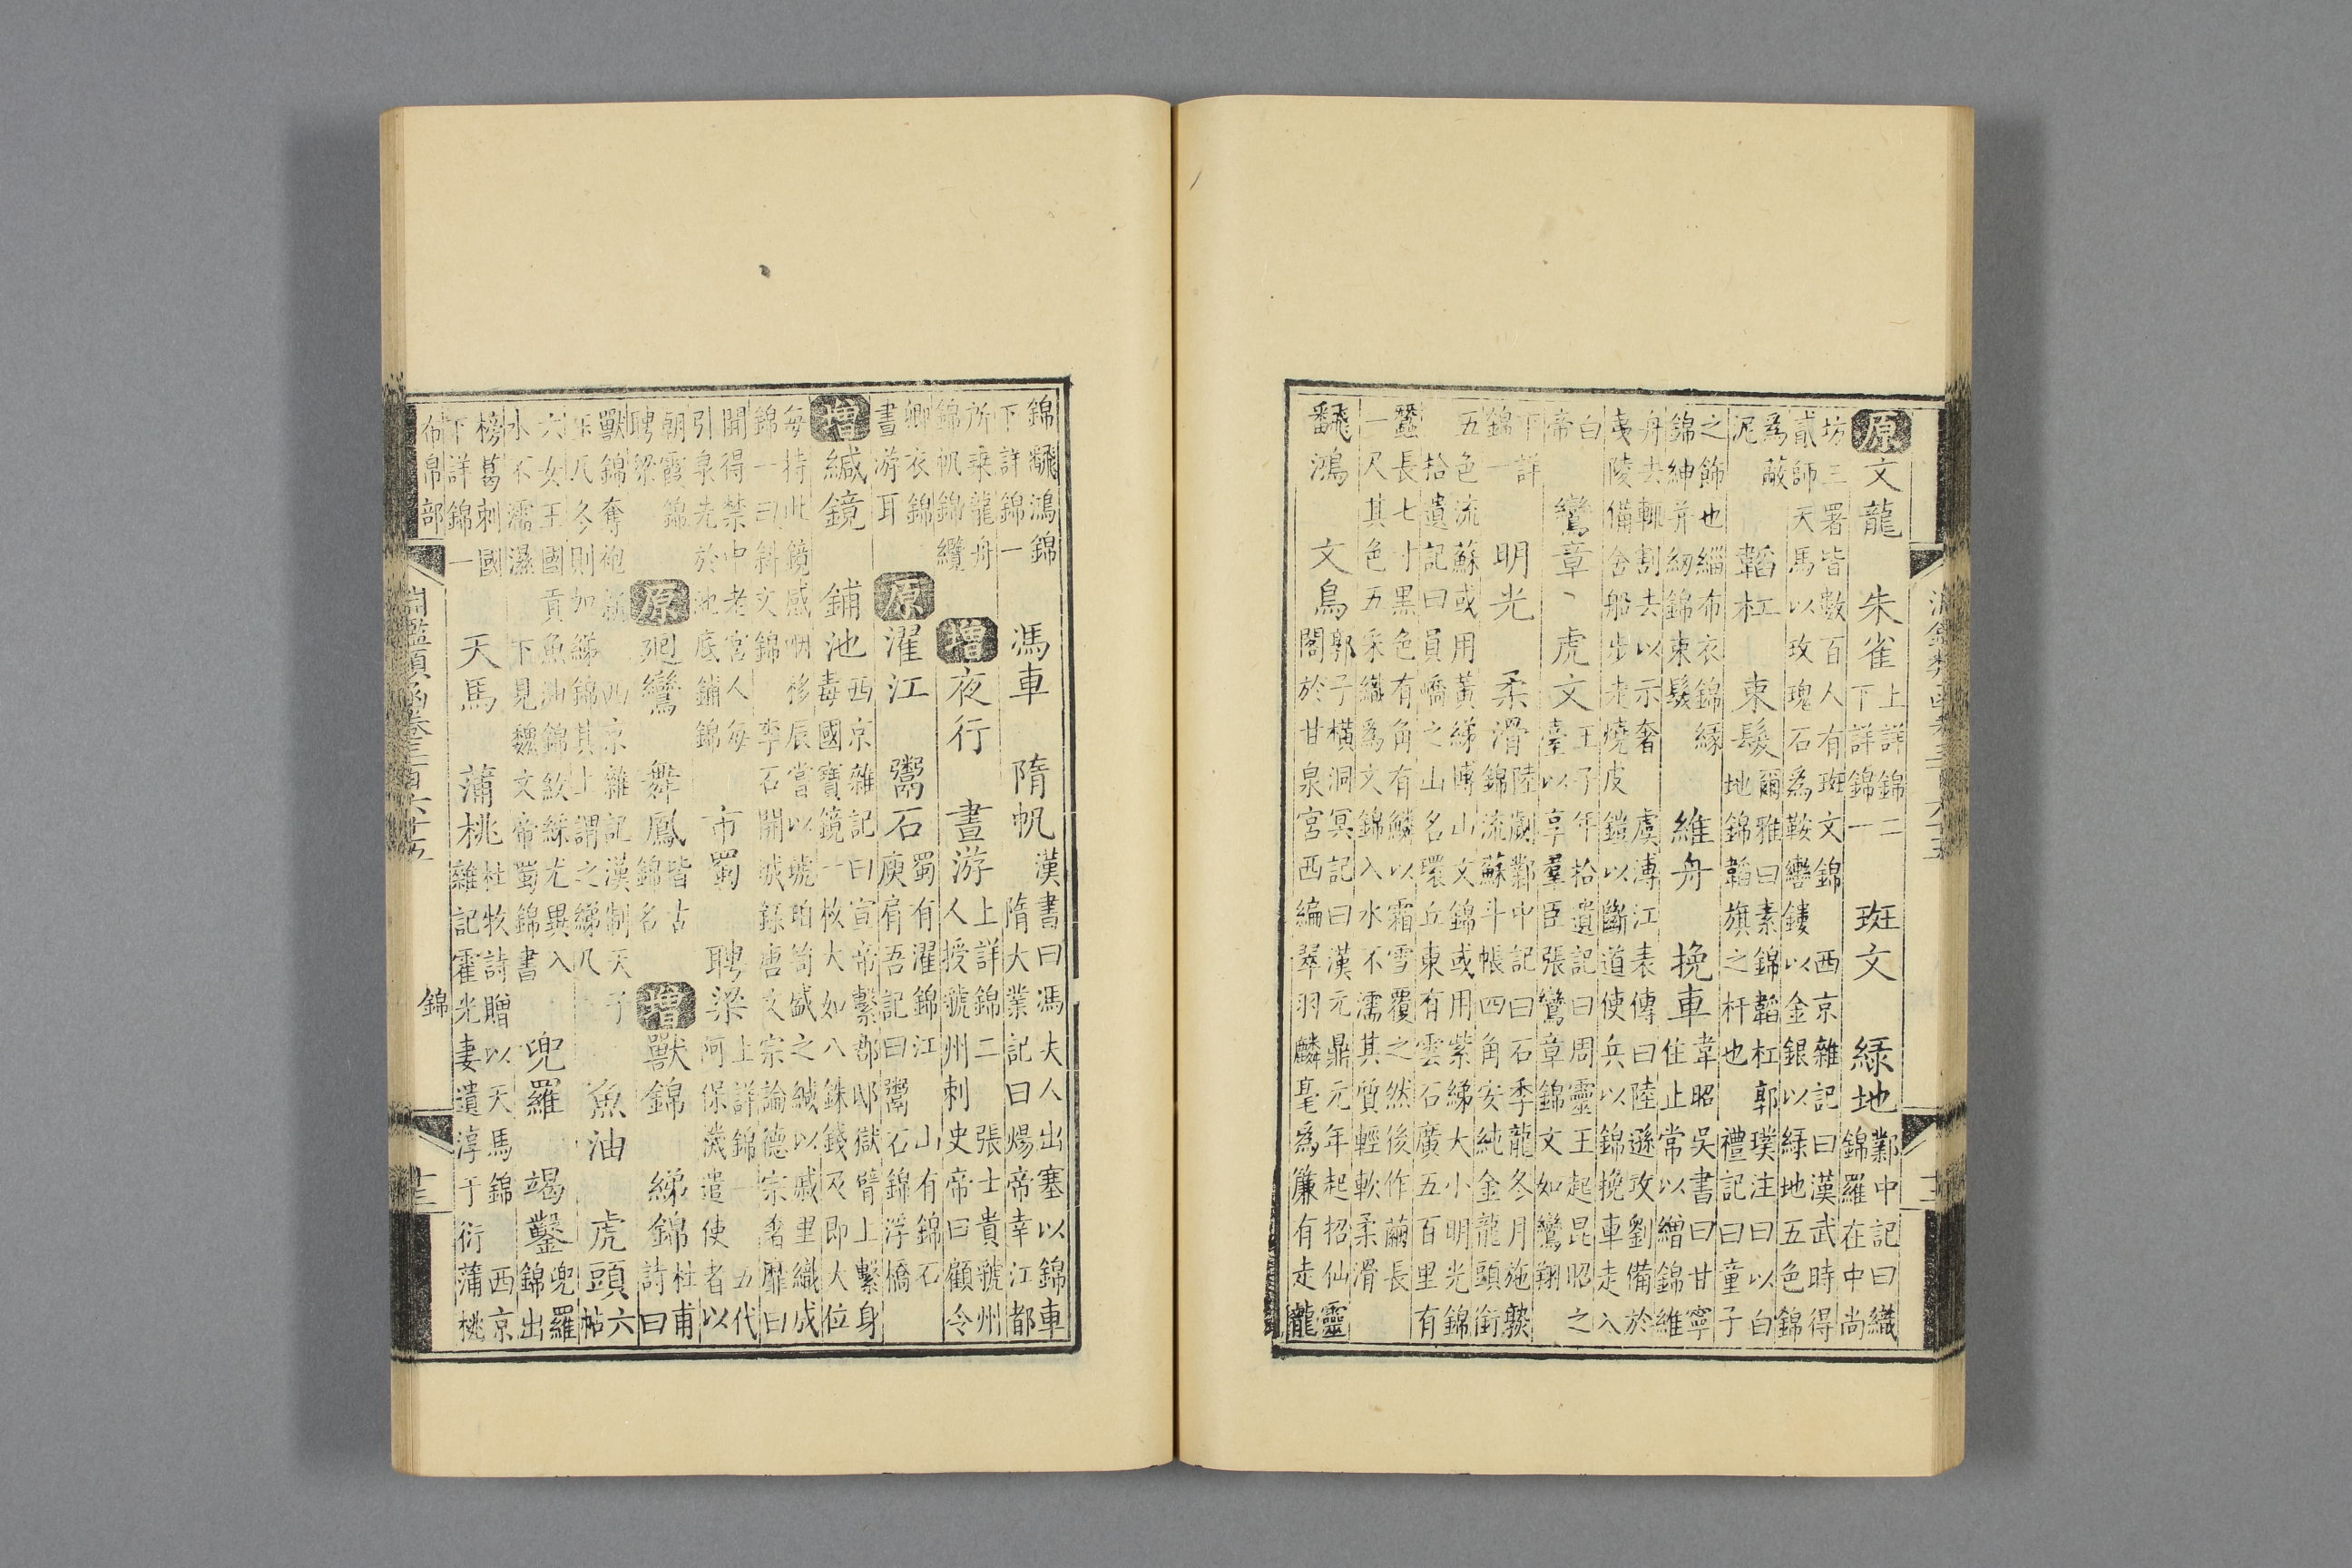 淵鑑類函卷三百六十五
十二
原文龍　朱雀上詳錦二下詳錦一　斑文　緑地鄴中記曰織錦羅在中尚
坊三署皆數百人有斑文錦　西京雜記曰漢武時得
貳師天馬以玫瑰石爲鞍轡鏤以金銀以緑地五色錦
爲蔽泥　韜杠　束髮爾雅曰素錦韜杠郭璞注曰以白地錦韜旗之杆也　禮記曰童子
之飾也緇布衣錦緣錦紳并紉錦束髮　維舟　挽車韋昭吳書曰甘寧住止常以繒錦維
舟去輒割去以示奢　虞溥江表傳曰陸遜攻劉備於
夷陵備舍船步走燒皮鎧以斷道使兵以錦挽車走入
白帝　鸞章、虎文王子年拾遺記曰周靈王起昆昭之臺以享羣臣張鸞章錦文如鸞翔
下詳錦一　明光　柔滑陸翽鄴中記曰石季龍冬月施熟錦流蘇斗帳四角安純金龍頭銜
五色流蘇或用黃綈博山文錦或用紫綈大小明光錦
拾遺記曰員嶠之山名環丘東有雲石廣五百里有
蠶長七寸黑色有角有鱗以霜雪覆之然後作繭長
一尺其色五采織爲文錦入水不濡其質輕軟柔滑
飜鴻　文鳥郭子橫洞冥記曰漢元鼎元年起招仙靈閣於甘泉宮西編翠羽麟毫爲簾有走龍
錦飜鴻錦下詳錦一　馮車　隋帆漢書曰馮夫人出塞以錦車　隋大業記曰煬帝幸江都
所乘龍舟錦帆錦纜　增夜行　晝游上詳錦二　張士貴虢州人授虢州刺史帝曰顧令
卿衣錦晝游耳　原濯江　鬻石蜀有濯錦江　山有錦石庾肩吾記曰鬻石錦浮橋
增緘鏡　鋪池西京雜記曰宣帝繫郡邸獄臂上繫身毒國寶鏡一枚大如八銖錢及即大位
每持此鏡感咽移辰嘗以琥珀笥盛之緘以戚里織成
錦一曰斜文錦　李石開城錄唐文宗論德宗奢靡曰
開得禁中老宮人每引泉先於池底鋪錦　市蜀　聘梁上詳錦一　五代何保濊遣使者以
朝霞錦聘梁　原廻鸞　舞鳳皆古錦名　增獸錦　綈錦杜甫詩曰
獸錦奪袍新　西京雜記漢制天子玉几冬則加綈錦其上謂之綈几　魚油　虎頭六帖
六女王國貢魚油錦紋綵尤異入水不濡濕　下見魏文帝蜀錦書　兜羅　竭鑿兜羅錦出
榜葛刺國下詳錦一　天馬　蒲桃杜牧詩贈以天馬錦　西京雜記霍光妻遺淳于衍蒲桃
布帛部　淵鑑類函卷三百六十五　錦　十三